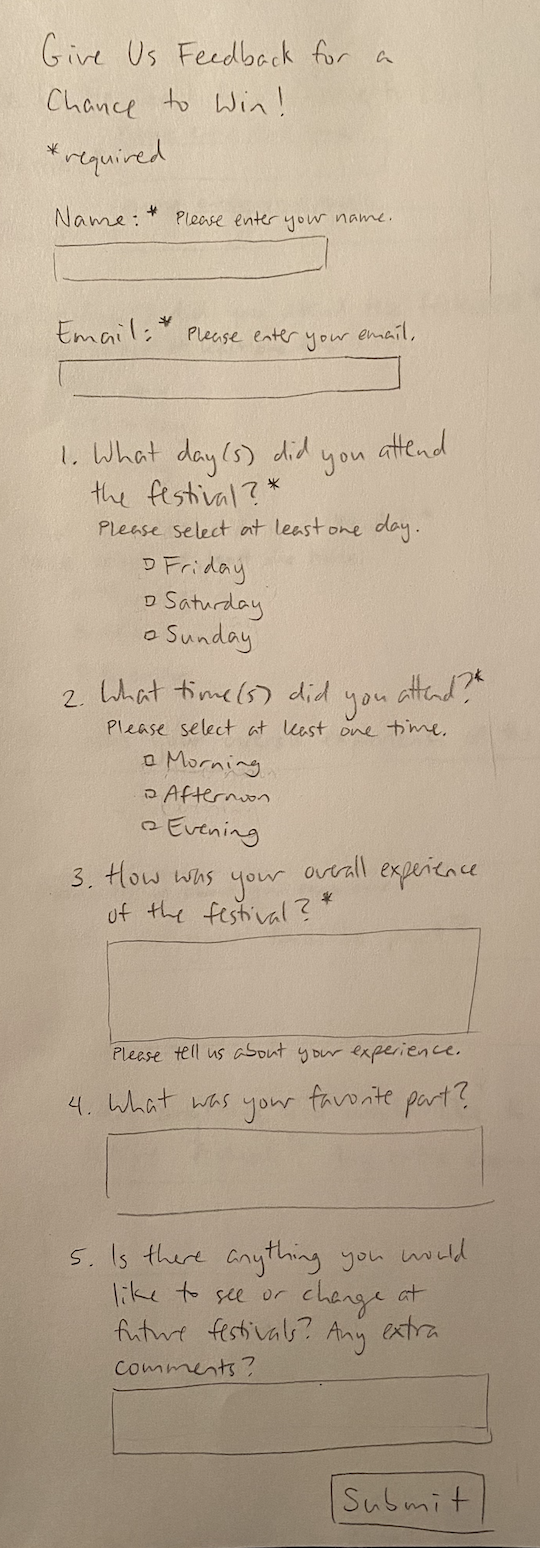 Give Us Feedback for a
Chance to Win!
*required
Name:* Please enter your name.
Email:* Please enter your email.
1. What day(s) did you attend
the festival?*
Please select at least one day.
Friday
Saturday
Sunday
2. What time(s) did you attend?*
Please select at least one time.
Morning
Afternoon
Evening
3. How was your overall experience
of the festival?*
Please tell us about your experience.
4. What was your favorite part?
5. Is there anything you would
like to see or change at
future festivals? Any extra
comments?
Submit